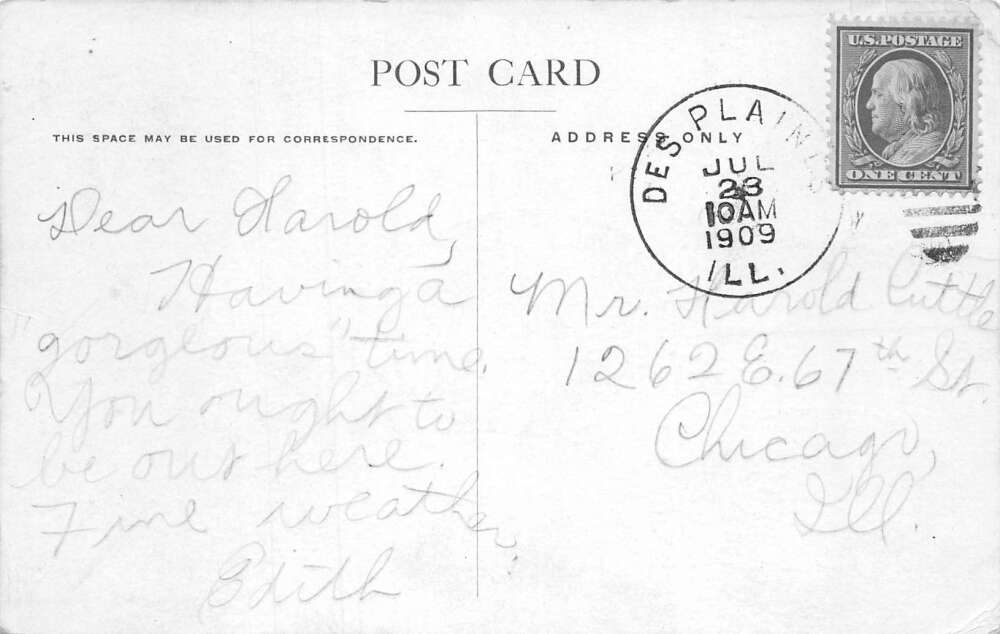 POST CARD
THIS SPACE MAY BE USED FOR CORRESPONDENCE.
ADDRESS ONLY
U.S. POSTAGE
ONE CENT
DES PLAINES
JUL
23
10AM
1909
ILL.
Dear Harold,
Having a
"gorgeous" time.
You ought to
be out here.
Fine weather.
Edith
Mr. Harold Cuttle
1262 E. 67th St.
Chicago,
Ill.